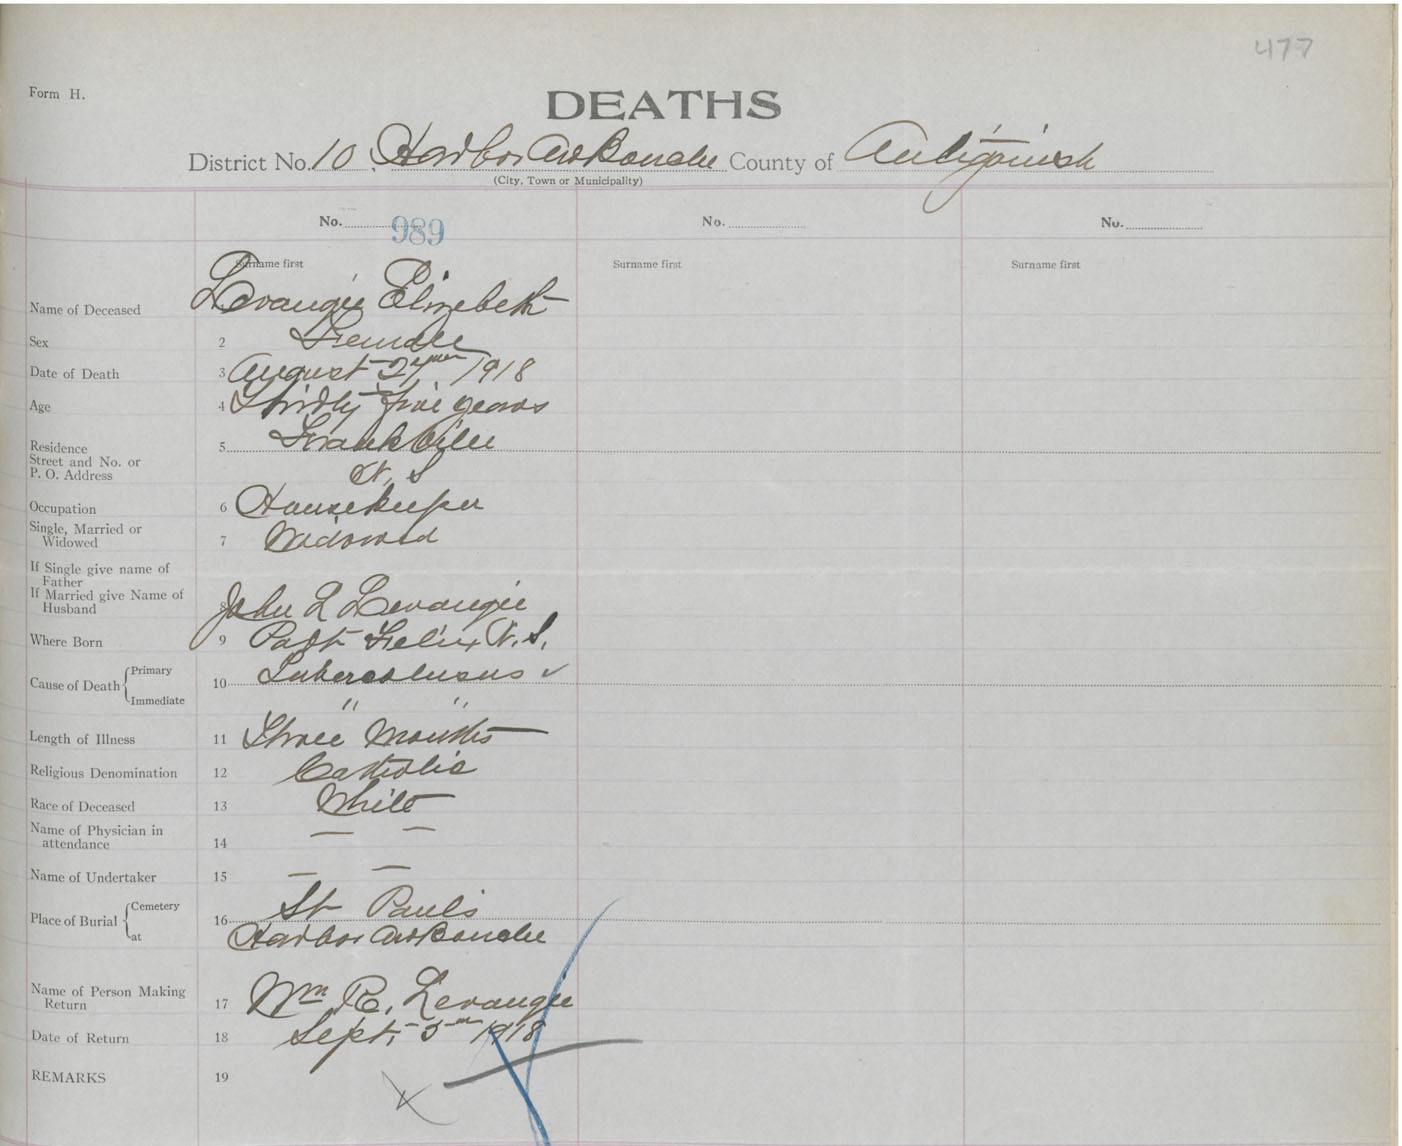 477
Form H.
DEATHS
District No. 10, Harbor Au Bouche County of Antigonish
(City, Town or Municipality)
No. 989 No. No.
Surname first Surname first Surname first
Name of Deceased 1 Levangie Elizebeth
Sex 2 Female
Date of Death 3 August 1918
Age 4 Thirdty five years
Residence 5 Frankville
Street and No. or
P. O. Address N. S
Occupation 6 Housekeeper
Single, Married or
Widowed 7 Widowed
If Single give name of
Father
If Married give Name of
Husband 8 John L Levangie
Where Born 9 Port Felix N. S.
Cause of Death { Primary
10 Tuberculusus ✓
Immediate " "
Length of Illness 11 Three Months
Religious Denomination 12 Catholic
Race of Deceased 13 White
Name of Physician in
attendance 14 — —
Name of Undertaker 15 — —
Place of Burial { Cemetery 16 St Pauls
at Harbor Au Bouche
Name of Person Making
Return 17 Wm R. Levangie
Date of Return 18 Sept. 1918
REMARKS 19